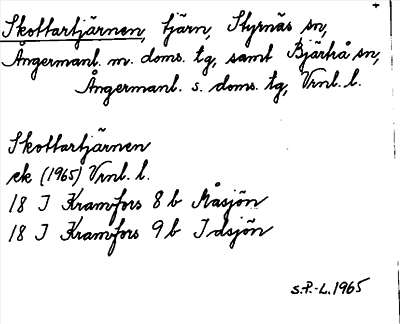 Skottartjärnen, tjärn, Styrnäs sn,
Ångermanl. m. doms. tg, samt Bjärtrå sn,
Ångermanl. s. doms. tg, Vrnl. l.
Skottartjärnen
ek (1965) Vrnl. l.
18 I Kramfors 8 b Måsjön
18 I Kramfors 9 b Idsjön
S.P.-L. 1965